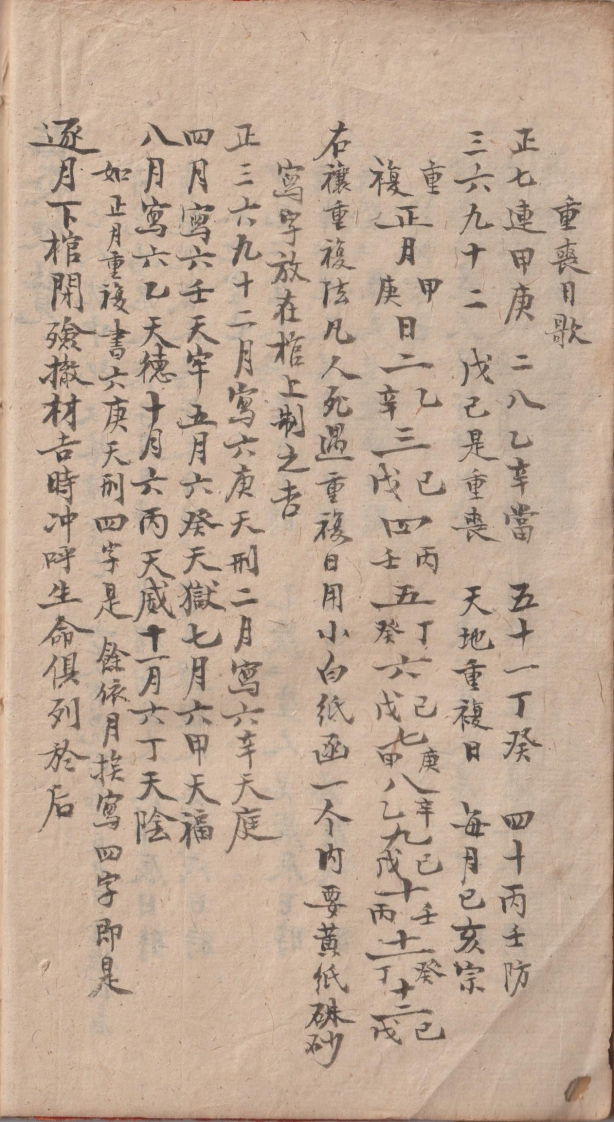 重喪日歌
正七連甲庚 二八乙辛當 五十一丁癸 四十丙壬防
三六九十二 戊己是重喪 天地重複日 每月巳亥宗
重 甲 乙 己 丙 丁 己 庚 辛 己 壬 癸 己
複 正月 庚 日二 辛 三 戊 四 壬 五 癸 六 戊 七 甲 八 乙 九 戊 十 丙 十一 丁 十二 戊
右禳重複法凡人死遇重複日用小白紙函一个內要黃紙硃砂
寫字放在棺上制之吉
正三六九十二月寫六庚天刑二月寫六辛天庭
四月寫六壬天牢五月六癸天獄七月六甲天福
八月寫六乙天德十月六丙天威十一月六丁天陰
如正月重複書六庚天刑四字是 餘依月挨寫四字即是
逐月下棺閉殮撤材吉時冲呼生命俱列於后